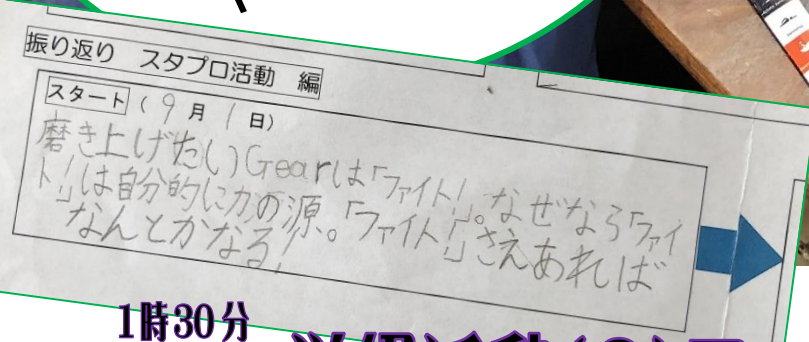 振り返り スタプロ活動 編
スタート (9月1日)
磨き上げたいGearは「ファイト!」。なぜなら「ファイ
ト!」は自分的に力の源。「ファイト!」さえあれば
なんとかなる!
1時30分